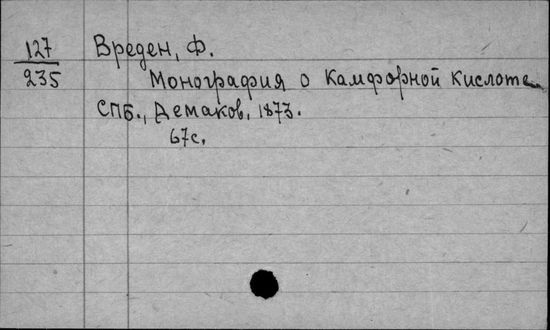 127
235
Вреден, Ф.
Монография о камфорной кислоте
СПБ., Демаков, 1873.
67с.